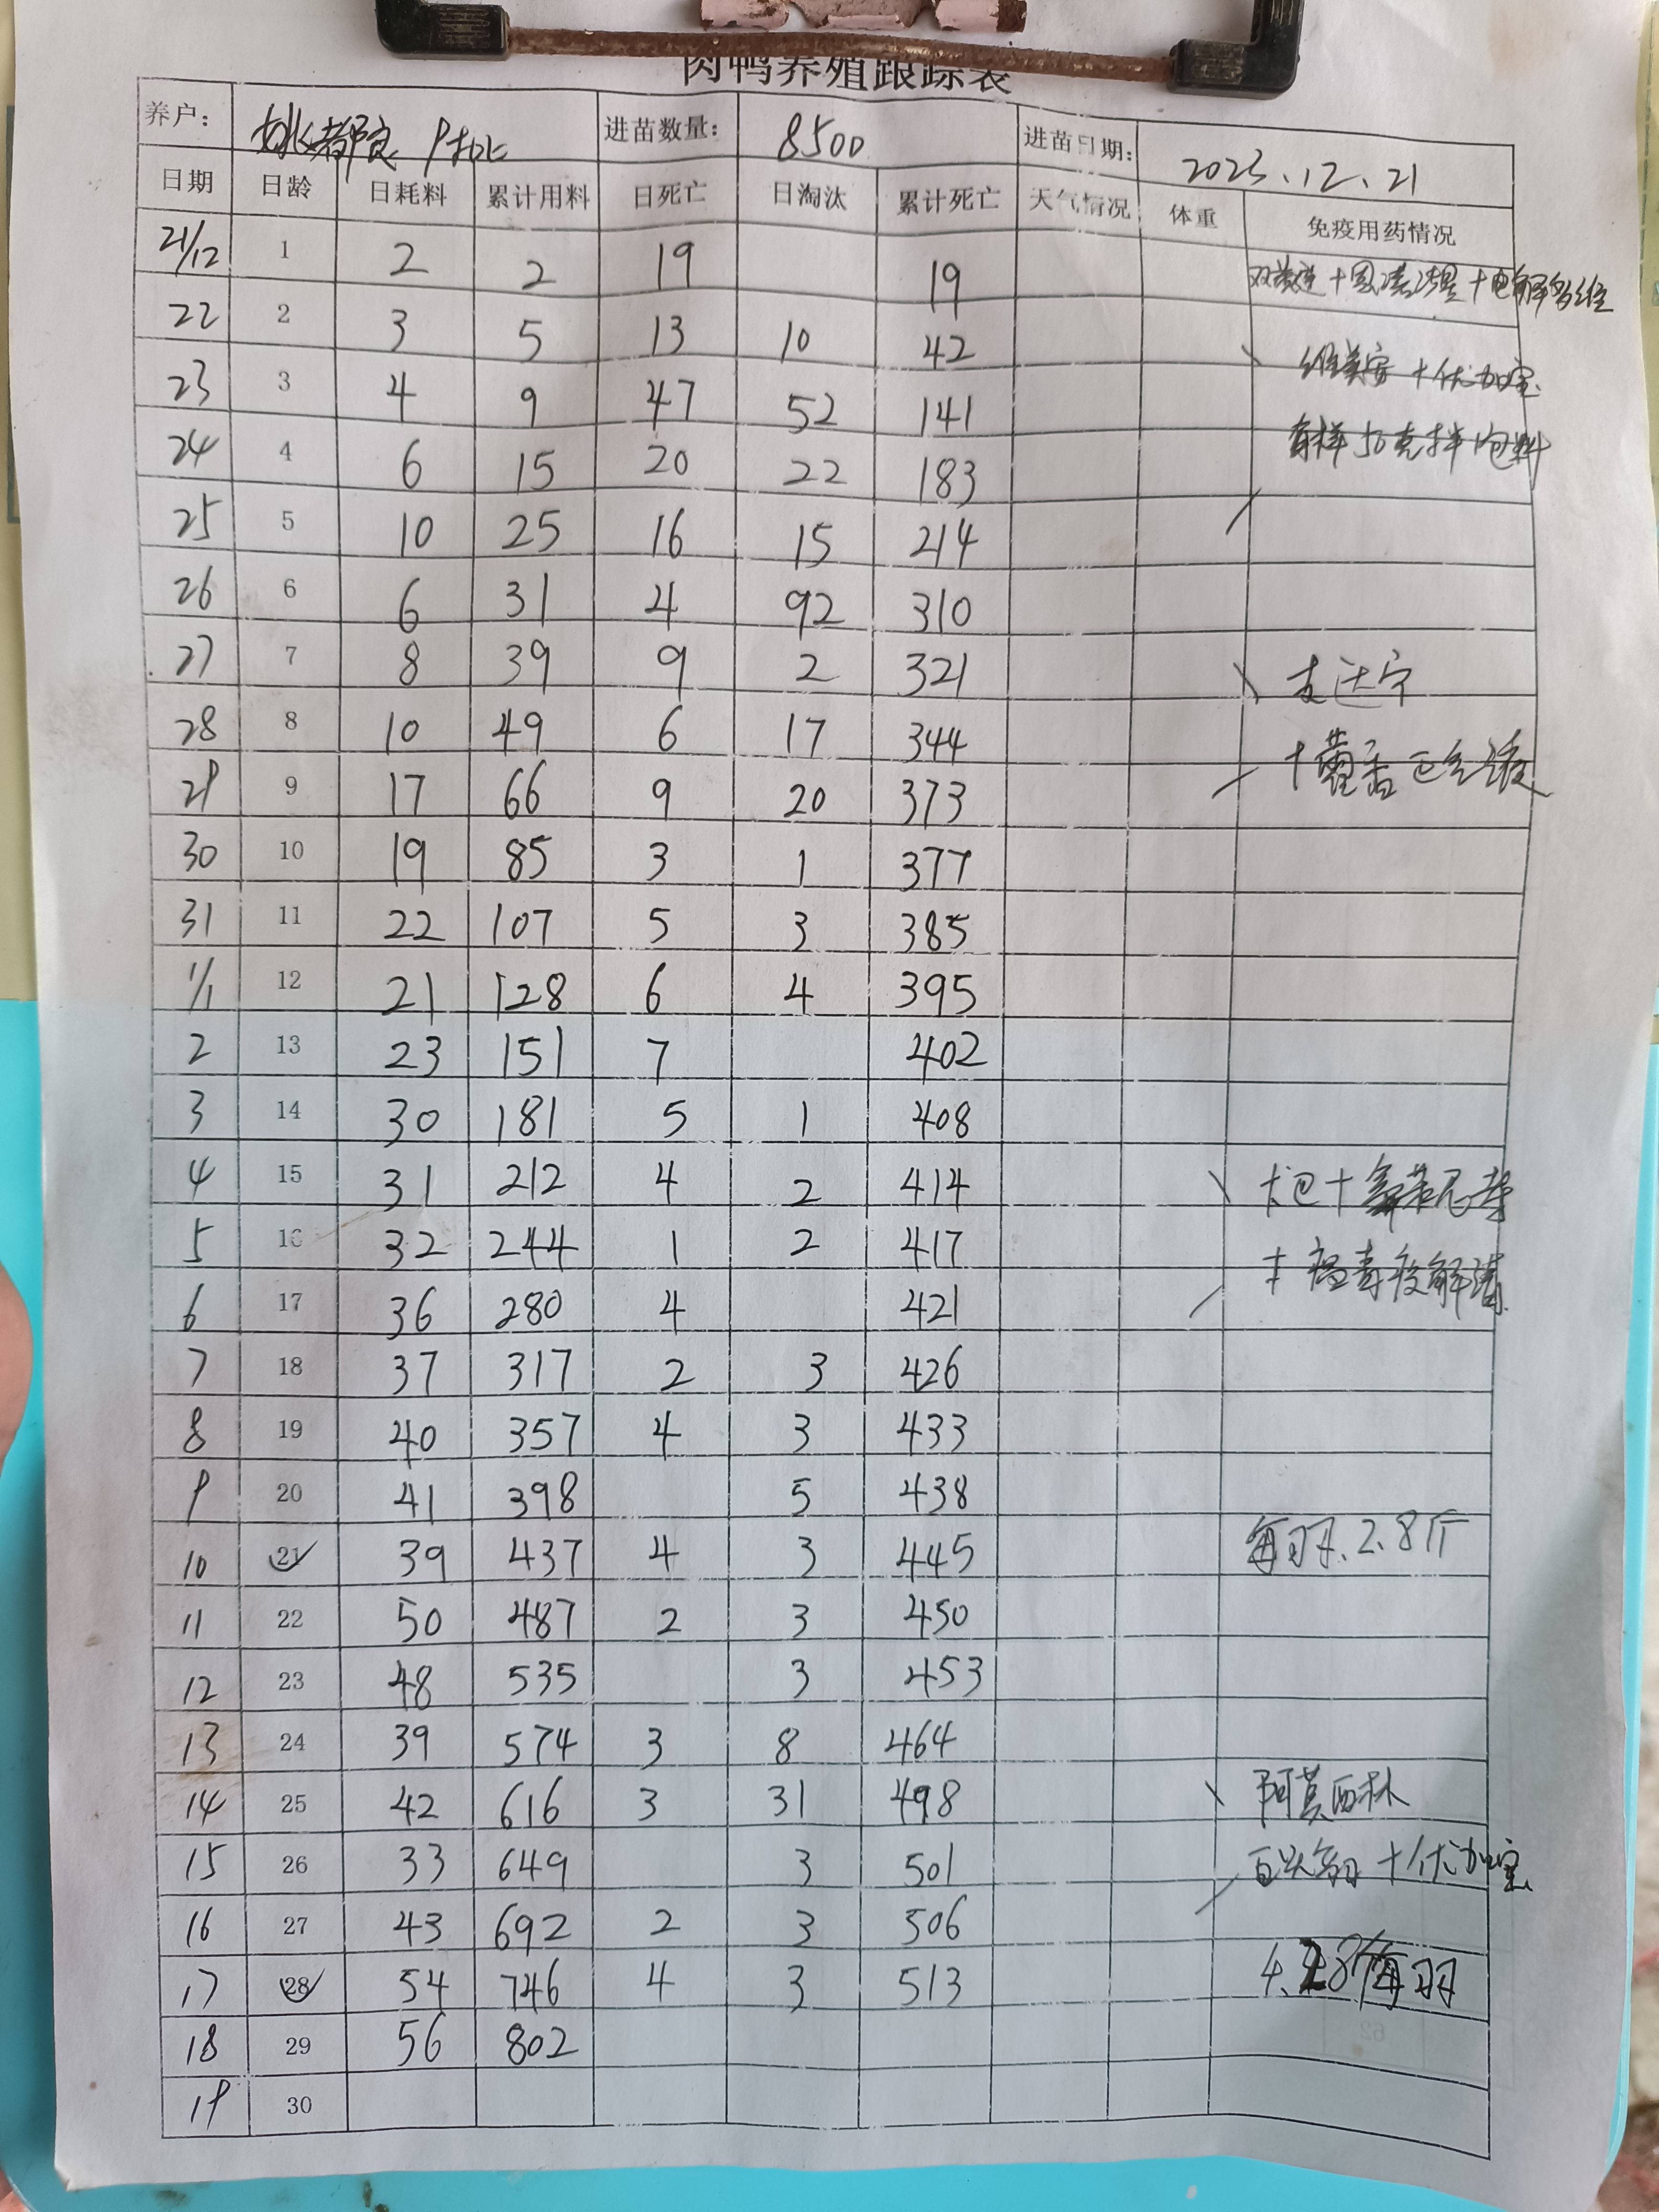 肉鸭养殖跟踪表
养户： 姚都良 进苗数量： 8500 进苗日期： 2023.12.21
日期 日龄 日耗料 累计用料 日死亡 日淘汰 累计死亡 天气情况 体重 免疫用药情况
21/12 1 2 2 19 19 双黄连+电解多维
22 2 3 5 13 10 42 维美安+优加宝
23 3 4 9 47 52 141 每样50克拌1包料
24 4 6 15 20 22 183
25 5 10 25 16 15 214
26 6 6 31 4 92 310
27 7 8 39 9 2 321 支达宁
28 8 10 49 6 17 344 +
29 9 17 66 9 20 373
30 10 19 85 3 1 377
31 11 22 107 5 3 385
1/1 12 21 128 6 4 395
2 13 23 151 7 402
3 14 30 181 5 1 408
4 15 31 212 4 2 414 大包+氟苯尼考
5 16 32 244 1 2 417 +瘟毒疫解清
6 17 36 280 4 421
7 18 37 317 2 3 426
8 19 40 357 4 3 433
9 20 41 398 5 438
10 21 39 437 4 3 445 每羽.2.8斤
11 22 50 487 2 3 450
12 23 48 535 3 453
13 24 39 574 3 8 464
14 25 42 616 3 31 498 阿莫西林
15 26 33 649 3 501 +优加宝
16 27 43 692 2 3 506
17 28 54 746 4 3 513 每羽
18 29 56 802
19 30